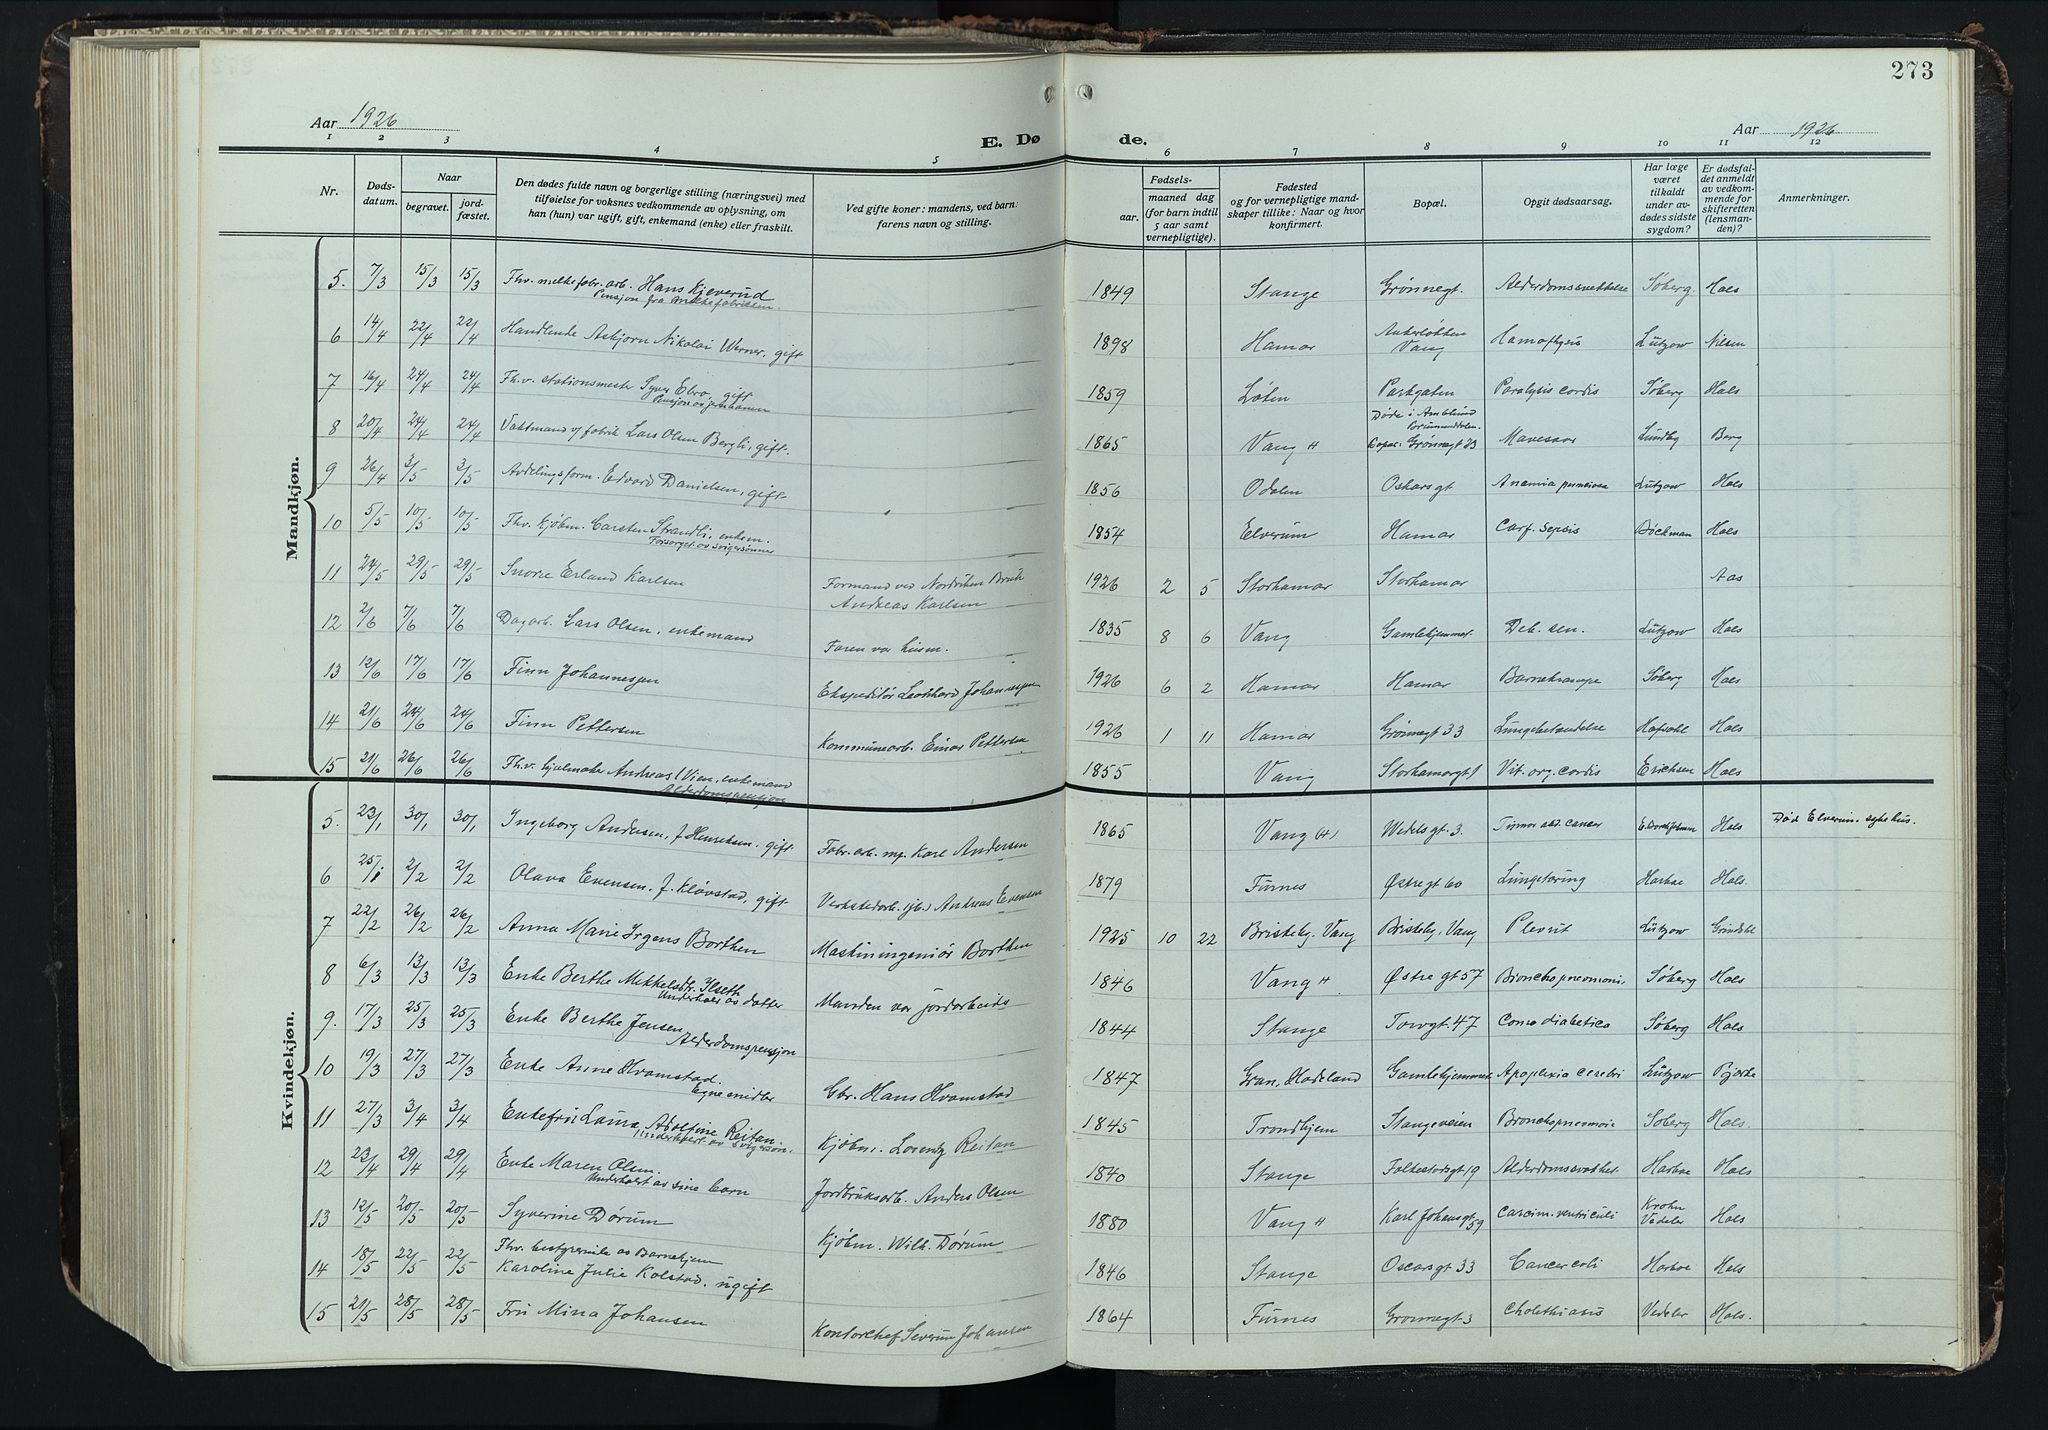 273
Aar 1926
E. Dø
de.
Aar 1926
1 2 3 4 5 6 7 8 9 10 11 12
Nr.
Døds-
datum.
Naar
begravet.
jord-
fæstet.
Den dødes fulde navn og borgerlige stilling (næringsvei) med
tilføielse for voksnes vedkommende av oplysning, om
han (hun) var ugift, gift, enkemand (enke) eller fraskilt.
Ved gifte koner: mandens, ved barn:
farens navn og stilling.
Fødsels-
aar.
maaned dag
(for barn indtil
5 aar samt
vernepligtige).
Fødested
og for vernepligtige mand-
skaper tillike: Naar og hvor
konfirmert.
Bopæl.
Opgit dødsaarsag.
Har læge
været
tilkaldt
under av-
dødes sidste
sygdom?
Er dødsfal-
det anmeldt
av vedkom-
mende for
skifteretten
(lensman-
den)?
Anmerkninger.
Mandkjøn.
5. 7/3 15/3 15/3 Fhv. melkefabr. arb. Hans Kjeverud 1849 Stange Grønnegt. Alderdomssvakkelse Søberg Hals
Pensjon fra melkefabrikken.
6 14/4 22/4 22/4 Handlende Asbjørn Nikolai Werner, gift 1898 Hamar Ankerløkken Vang Lutzow Nilsen
7 16/4 24/4 24/4 Fh.v. stationsmester Syver Ebro, gift 1859 Løten Parkgaten Paralysis cordis Søberg Hals
Pensjon av jernbanen
8 20/4 24/4 24/4 Vaktmand v/ fabrik Lars Olsen Bergli, gift. 1865 Vang H Døde i Amblund Brumunddalen. Bopæl: Grønnegt 23 Mavesaar Lundby Berg
9 26/4 3/5 3/5 Avdelingsform. Edvard Danielsen, gift 1856 Odalen Oskarsgt Anæmia perniciosa Lutzow Hals
10 5/5 10/5 10/5 Fhv. kjøbm. Carsten Strandli, enkem. 1854 Elverum Hamar Sepsis Bøckman Hals
Forsørget av svigersønner
11 24/5 29/5 29/5 Snorre Erland Karlsen Formand ved Nordviken Bruk 1926 2 5 Storhamar Storhamar Aas
Andreas Karlsen
12 2/6 7/6 7/6 Dagarb. Lars Olsen, enkemand Faren var husm. 1835 8 6 Vang Gamlehjemmet. Deb. sen. Lutzow Hals
13 12/6 17/6 17/6 Finn Johannesen Ekspeditør Leonhard Johannesen 1926 6 2 Hamar Hamar Barnekrampe Søberg Hals
14 21/6 24/6 24/6 Finn Pettersen Kommunearb. Einar Pettersen 1926 1 11 Hamar Grønnegt 33 Lungebetændelse Hals
15 21/6 26/6 26/6 Fh.v. hjulmaker Andreas Vien, enkemand 1855 Vang Storhamargt 1 Vit. org. cordis Erichsen Hals
Alderdomspensjon
Kvindekjøn.
5. 23/1 30/1 30/1 Ingeborg Andersen, f. Henriksen. gift. Fabr. arb. Karl Andersen 1865 Vang (H) Wedelsgt. 3. Tumor abd. cancer Hals Død Elverum sykehus.
6 25/1 2/2 2/2 Olava Evensen. f. Kløvstad, gift Verkstedarb. (jb.) Andreas Evensen 1879 Furnes Østregt 60 Lungetæring Harboe Hals.
7 22/2 26/2 26/2 Anna Marie Irgens Borthen Maskiningeniør Borthen 1925 10 22 Briskeby, Vang Briskeby, Vang Plevrit Lutzow
8 6/3 13/3 13/3 Enke Berthe Mikkelsdtr. Ilseth Manden var jordarbeids 1846 Vang H Østregt 57 Bronchopneumoni. Søberg Hals
Underholdt av datter
9. 17/3 25/3 25/3 Enke Berthe Jensen 1844 Stange Torvgt. 47 Coma diabetica Søberg Hals
Alderdomspensjon
10 19/3 27/3 27/3 Enke Anne Hvamstad. Gbr. Hans Hvamstad 1847 Gran, Hadeland Gamlehjemmet Apoplexia cerebri Lutzow Bjerke
Egne midler
11 27/3 3/4 3/4 Enkefru Laura Adolfine Reitan. Kjøbm. Lorentz Reitan 1845 Trondhjem Stangeveien Bronchopneumoni Søberg Hals.
Underholdt av svigersøn.
12 23/4 29/4 29/4 Enke Maren Olsen. Jordbruksarb. Anders Olsen 1840 Stange Folkestadsgt 19 Alderdomssvakhet. Harboe Hals
Underholdt av sine barn
13 12/5 20/5 20/5 Syverine Dørum Kjøbm. Wilh. Dørum 1880 Vang H Karl Johansgt 59 Carcim. ventriculi Krohn Vedeler Hals
14 18/5 22/5 22/5 Fhv. bestyrerinde av Barnehjem 1846 Stange Oscarsgt 33 Cancer coli Harboe Hals
Karoline Julie Kolstad, ugift
15 21/5 28/5 28/5 Fru Mina Johansen Kontorchef Severin Johansen 1864 Furnes Grønnegt 3 Cholethiasis Vedeler Hals.